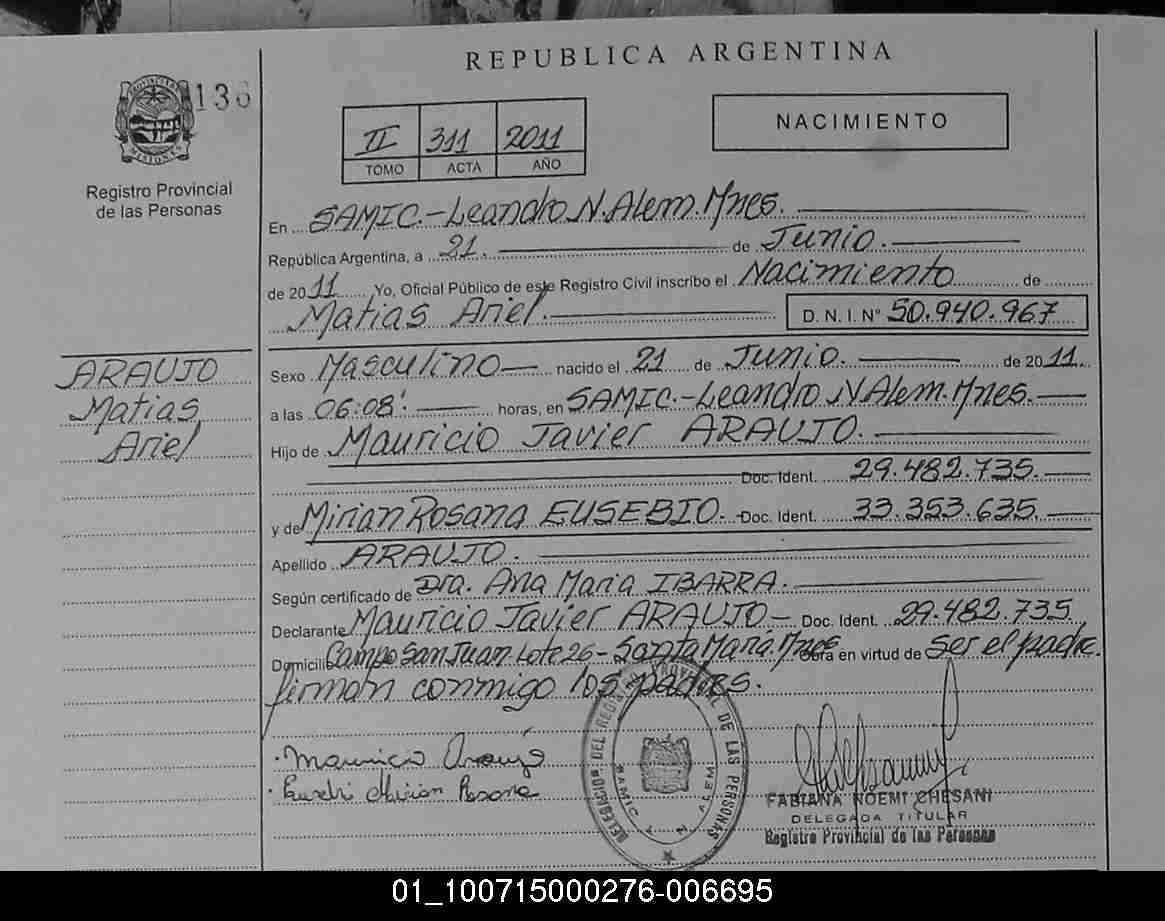 REPUBLICA ARGENTINA
PROVINCIA DE MISIONES
136
Registro Provincial
de las Personas
II 311 2011
TOMO ACTA AÑO
NACIMIENTO
En SAMIC.-Leandro N. Alem. Mnes.
República Argentina, a 21. de Junio.
de 2011 Yo, Oficial Público de este Registro Civil inscribo el Nacimiento de
Matias Ariel. D. N. I. Nº 50.940.967
ARAUJO
Matias
Ariel
Sexo Masculino nacido el 21 de Junio. de 2011.
a las 06:08'. horas, en SAMIC.-Leandro N Alem. Mnes.
Hijo de Mauricio Javier ARAUJO.
Doc. Ident. 29.482.735.
y de Mirian Rosana EUSEBIO. Doc. Ident. 33.353.635.
Apellido ARAUJO.
Según certificado de Dra. Ana Maria IBARRA.
Declarante Mauricio Javier ARAUJO - Doc. Ident. 29.482.735.
Domicilio Campo San Juan Lote 26 - Santa María. Mnes Obra en virtud de Ser el padre.
firman conmigo los padres.
Mauricio Araujo
Eusebio Mirian Rosana
DELEGACION DEL REGISTRO PROVINCIAL DE LAS PERSONAS
SAMIC L. N. ALEM
FABIANA NOEMI CHESANI
DELEGADA TITULAR
Registro Provincial de las Personas
01_100715000276-006695